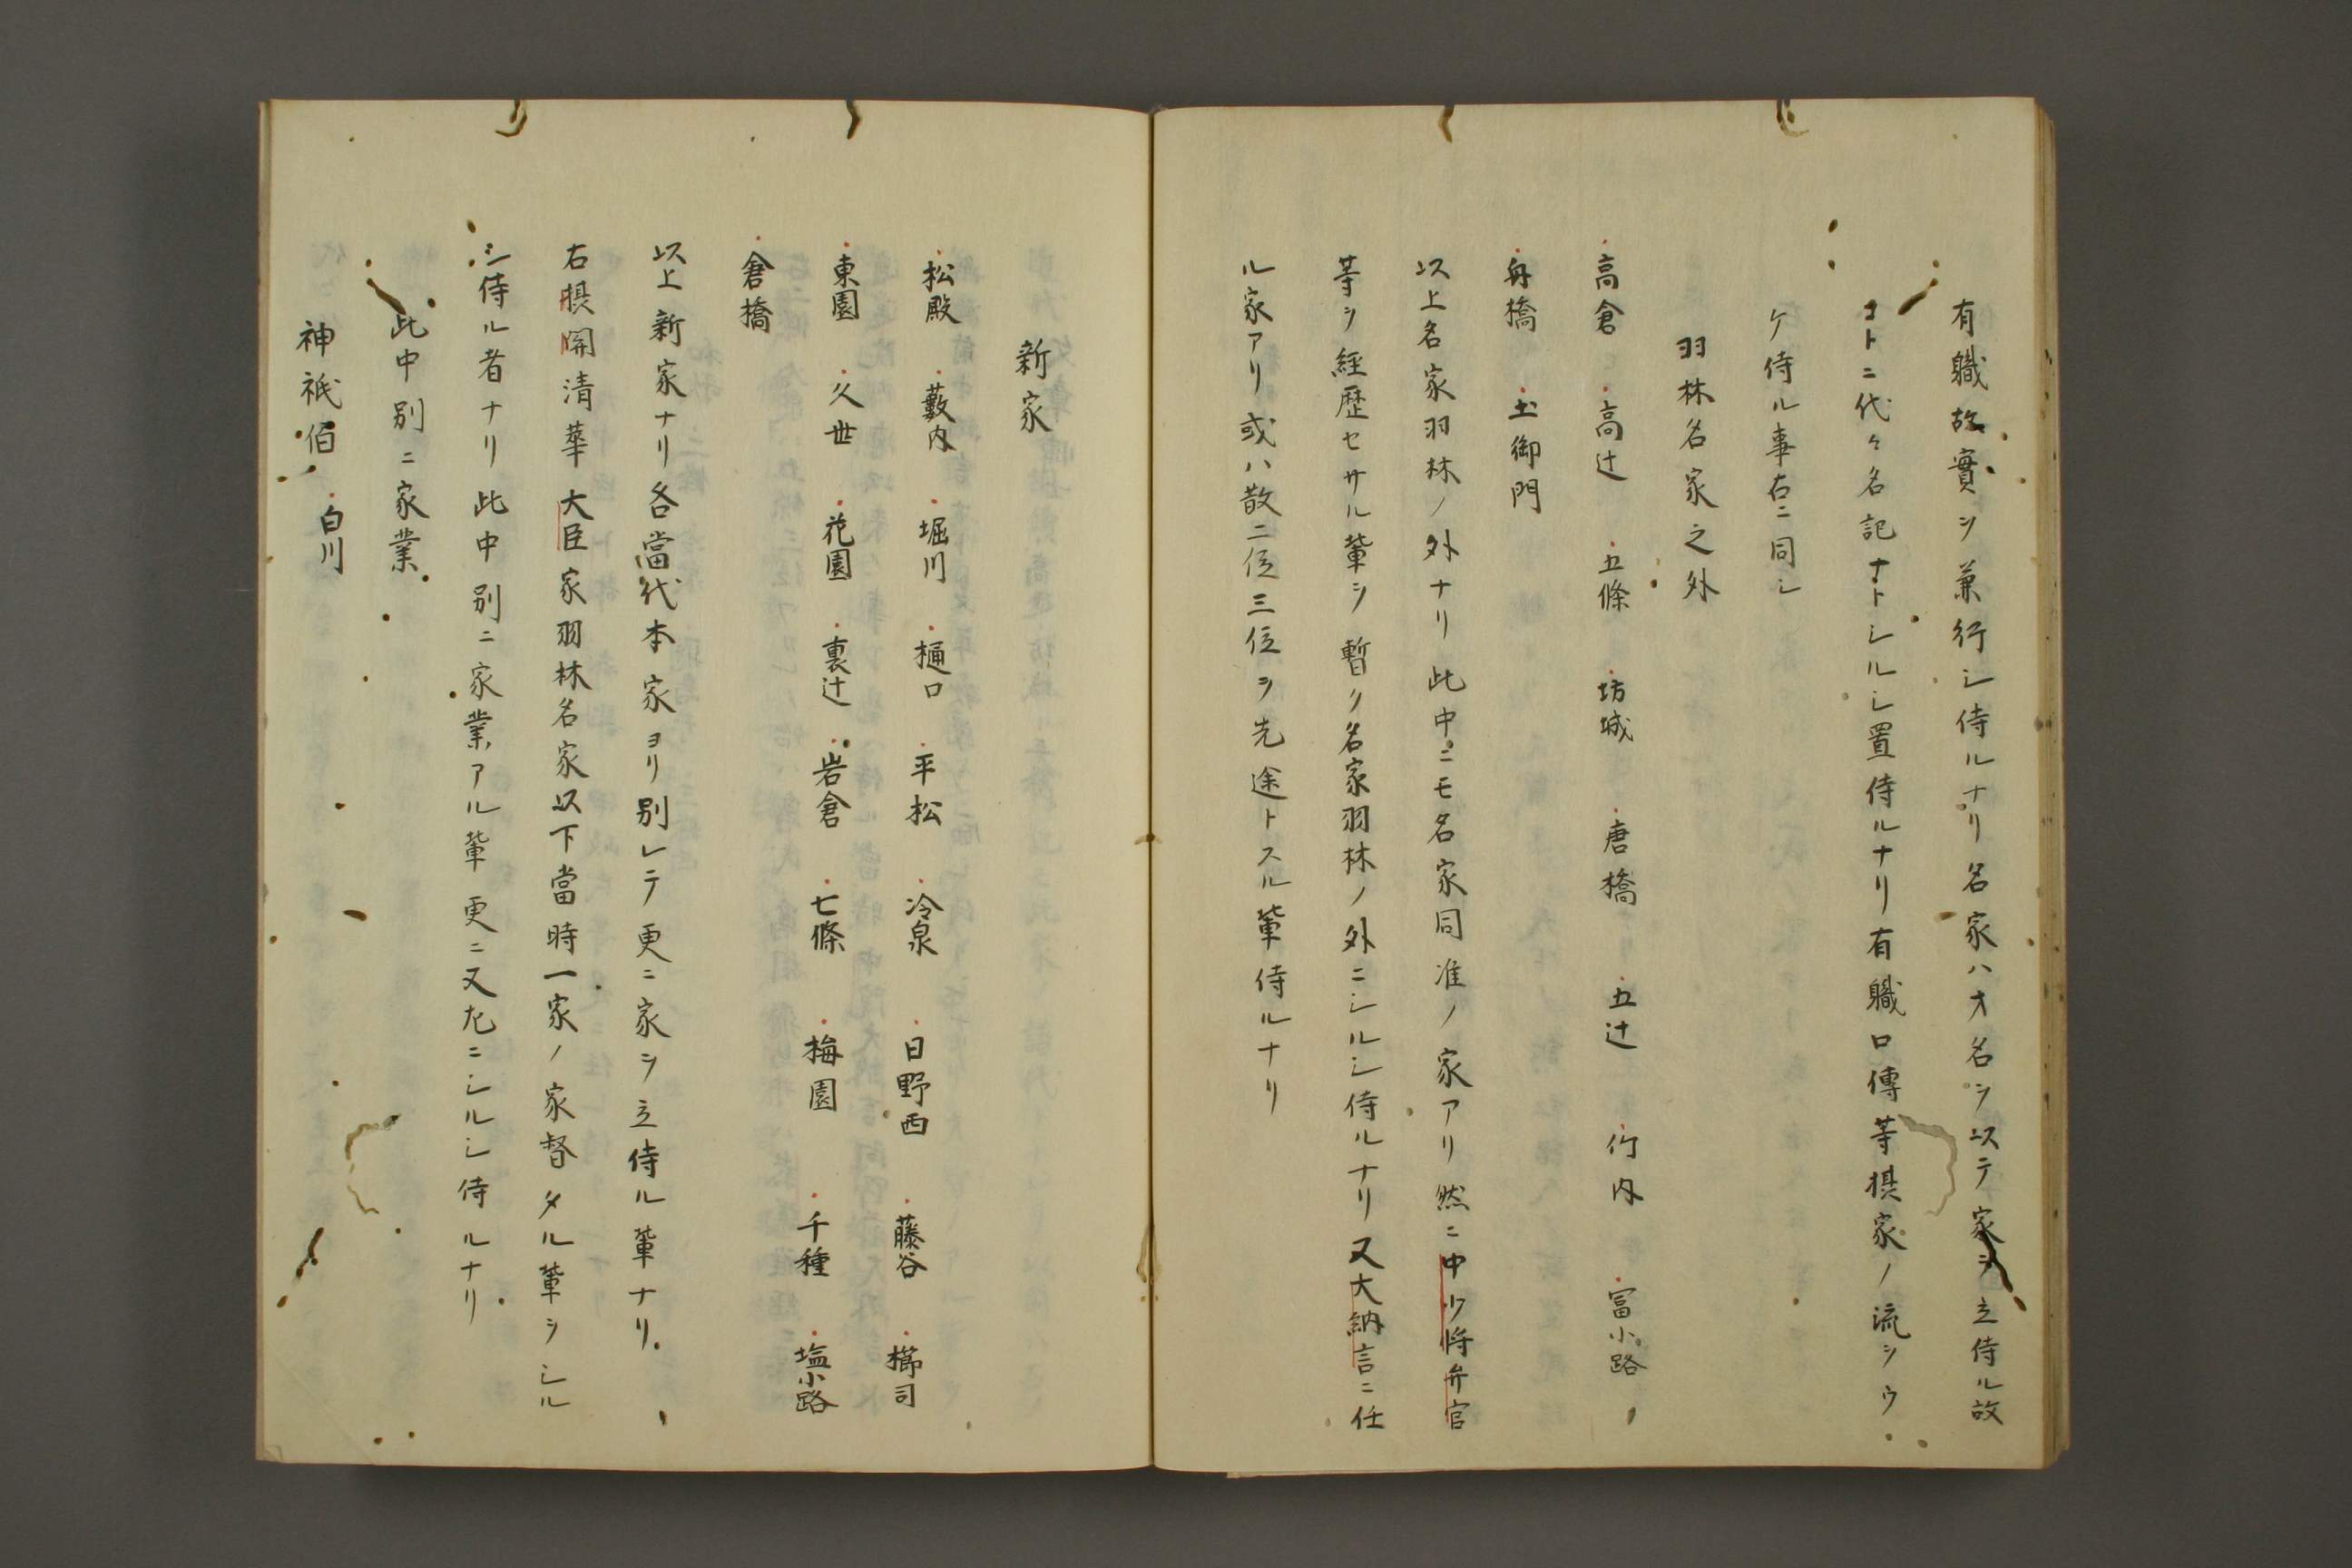 有職故實ヲ兼行シ侍ルナリ名家ハ才名ヲ以テ家ヲ立侍ル故
コトニ代々名記ナトシルシ置侍ルナリ有職口傳等摂家ノ流ヲウ
ケ侍ル事右ニ同シ
羽林名家之外
高倉 高辻 五條 坊城 唐橋 五辻 竹内 冨小路
舟橋 土御門
以上名家羽林ノ外ナリ此中ニモ名家同准ノ家アリ然ニ中少将弁官
等ヲ経歴セサル輩ヲ暫ク名家羽林ノ外ニシルシ侍ルナリ又大納言ニ任
ル家アリ或ハ散二位三位ヲ先途トスル輩侍ルナリ
新家
松殿 藪内 堀川 樋口 平松 冷泉 日野西 藤谷 櫛司
東園 久世 花園 裏辻 岩倉 七條 梅園 千種 塩小路
倉橋
以上新家ナリ各當代本家ヨリ別レテ更ニ家ヲ立侍ル輩ナリ
右摂関清華大臣家羽林名家以下當時一家ノ家督タル輩ヲシル
シ侍ル者ナリ此中別ニ家業アル輩更ニ又左ニシルシ侍ルナリ
此中別ニ家業
神祇伯 白川